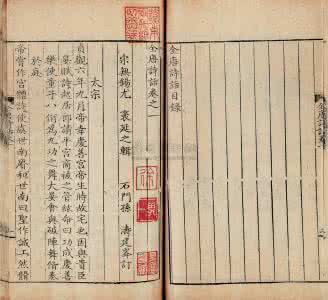 全唐詩話目錄
全唐詩話卷之一
宋無錫尤 袤延之輯 石門孫 濤建峯訂
太宗
貞觀六年九月帝幸慶善宮帝生時故宅也因與貴臣
宴賦詩起居郎請平宮商被之管絃命曰功成慶善
樂使童子八佾為九功之舞大宴會與破陣舞偕奏
於庭
帝嘗作宮體詩使虞世南賡和世南曰聖作誠工然體